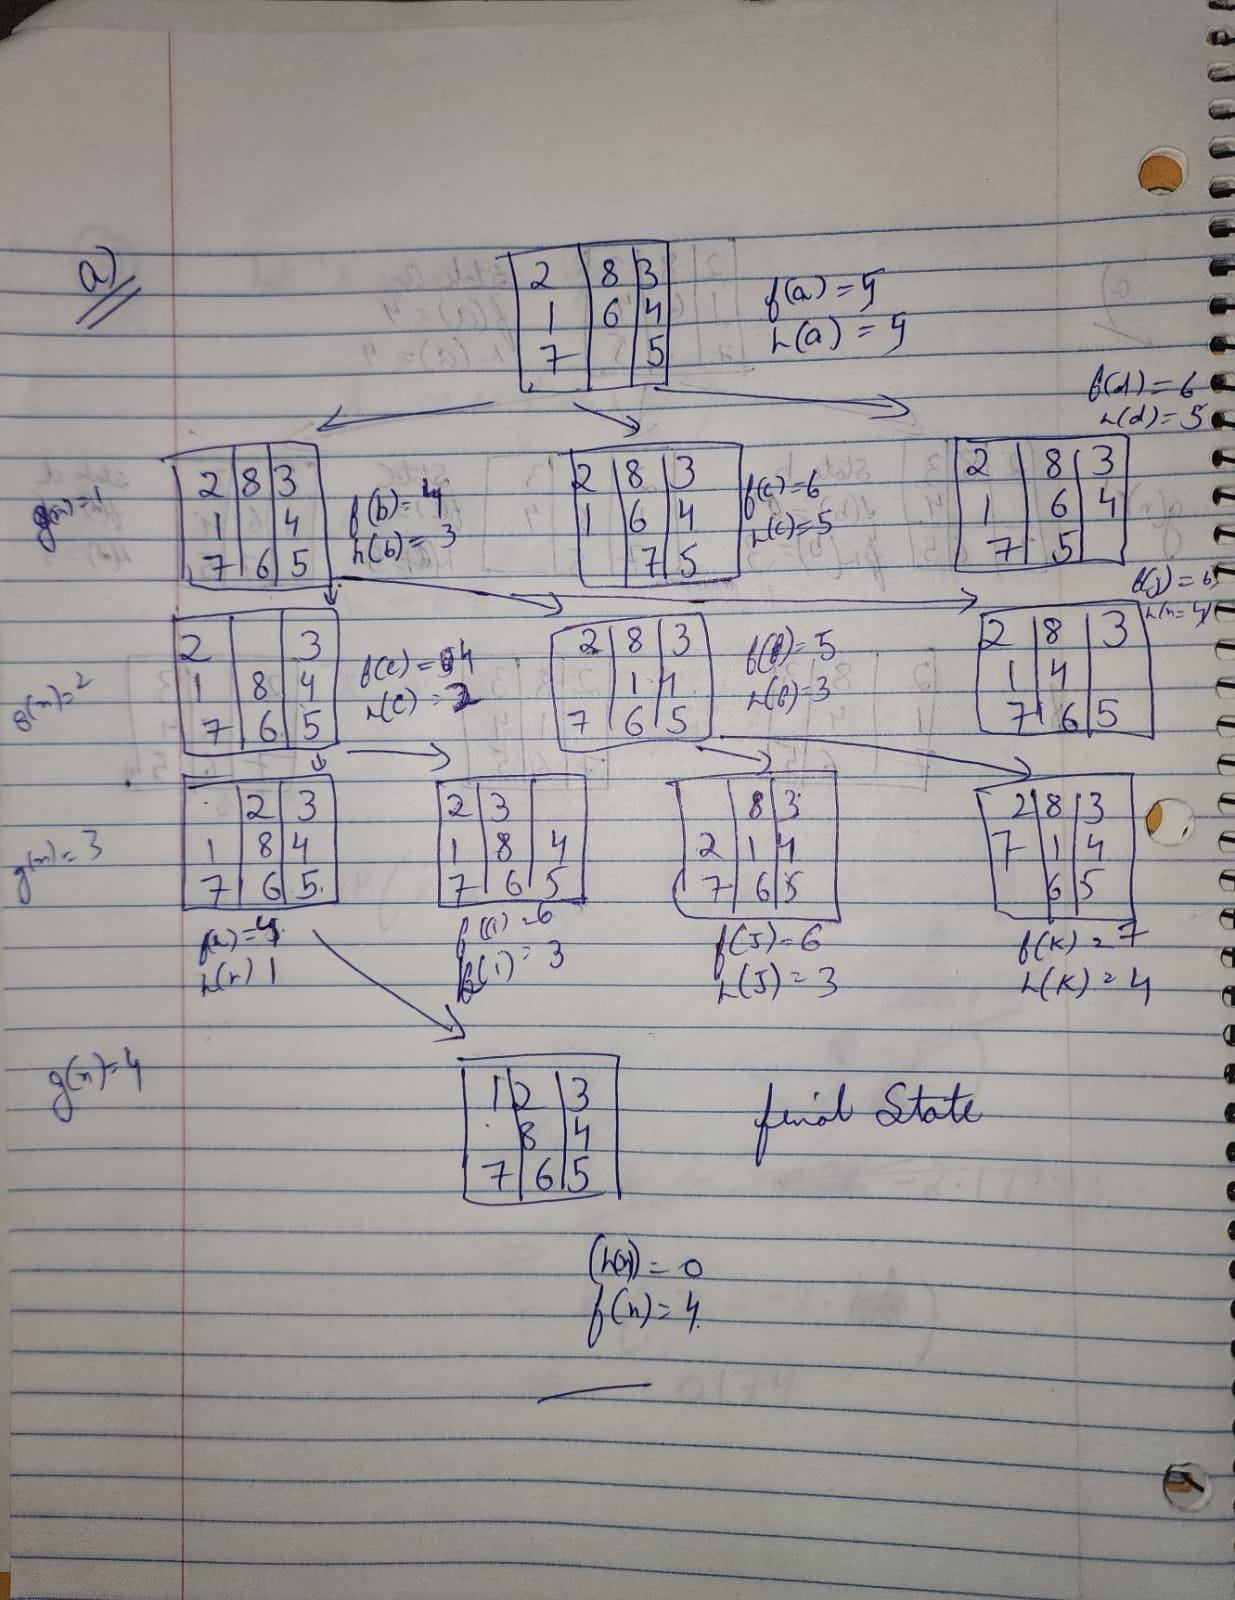 a)
2 8 3
1 6 4
7 5
f(a) = 5
h(a) = 5
f(d) = 6
h(d) = 5
g(n) = 1
2 8 3
1 4
7 6 5
f(b) = 4
h(b) = 3
2 8 3
1 6 4
7 5
f(c) = 6
h(c) = 5
2 8 3
1 6 4
7 5
g(n) = 2
2 3
1 8 4
7 6 5
h(e) = 2
2 8 3
1 4
7 6 5
f(f) = 5
h(f) = 3
2 8 3
1 4
7 6 5
g(n) = 3
2 3
1 8 4
7 6 5
h(n) 1
2 3
1 8 4
7 6 5
f(i) = 6
h(i) = 3
8 3
2 1 4
7 6 5
f(J) = 6
h(J) = 3
2 8 3
7 1 4
6 5
f(K) = 7
h(K) = 4
g(n) = 4
1 2 3
8 4
7 6 5
final State
(h(n)) = 0
f(n) = 4